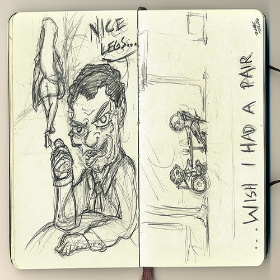 NICE
LEGS...
....WISH I HAD A PAIR